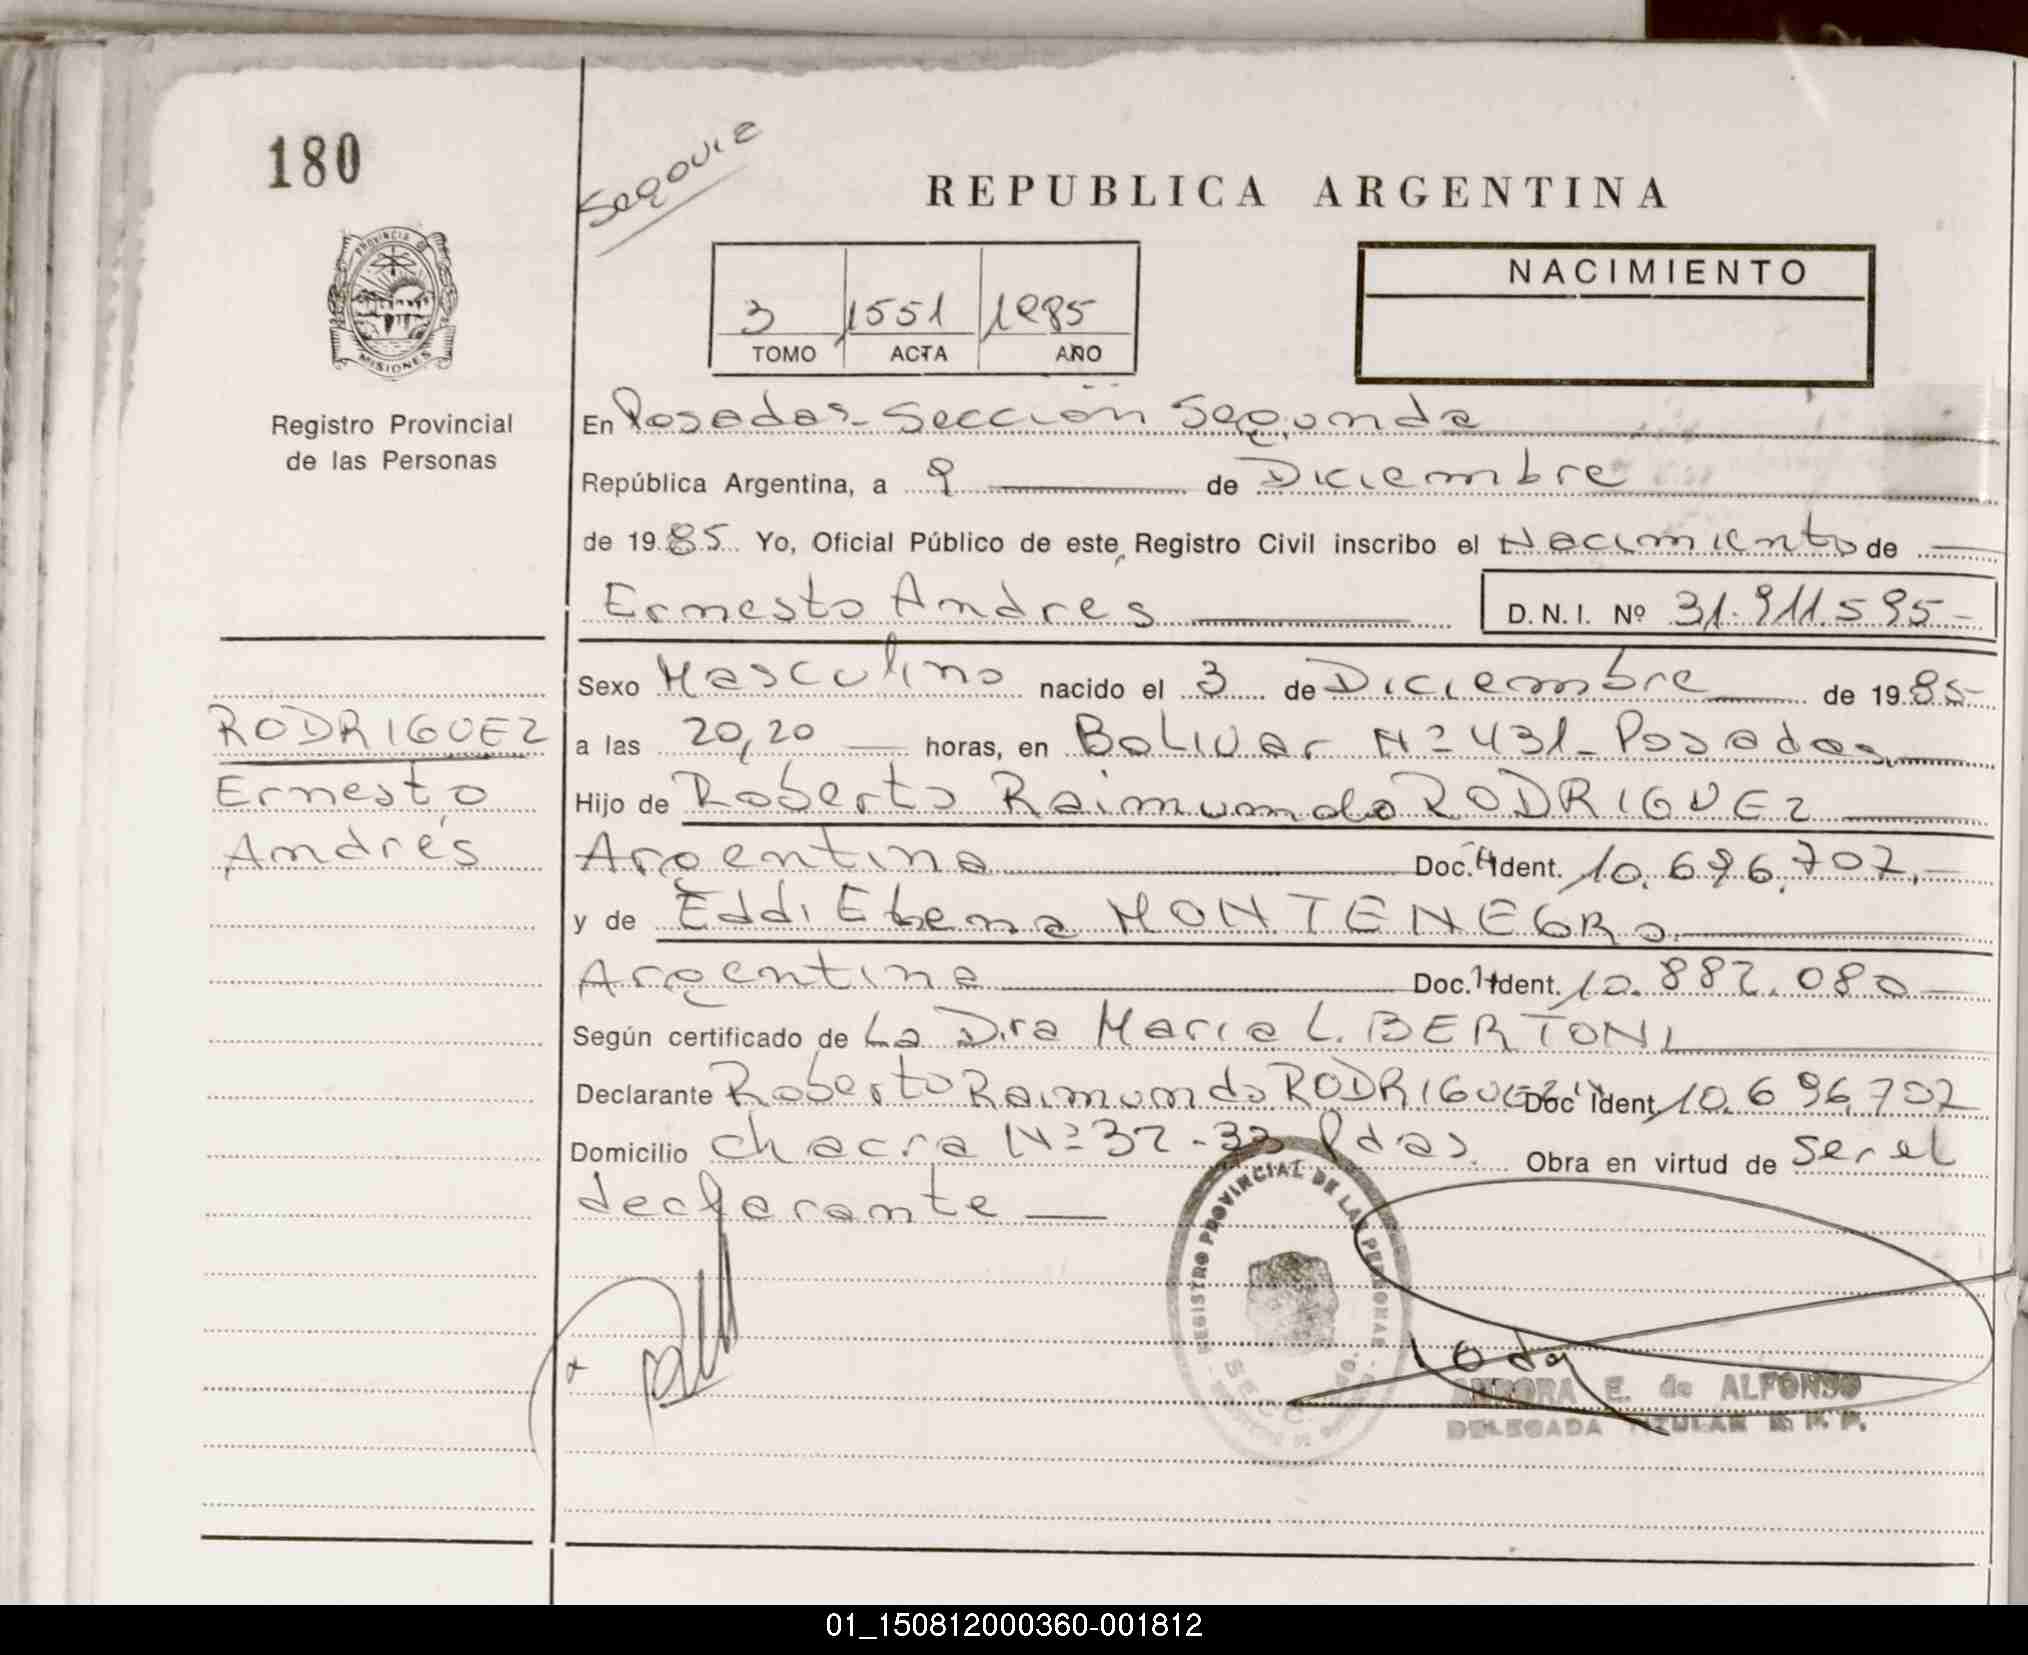 180
Segovia
REPUBLICA ARGENTINA
PROVINCIA DE
MISIONES
NACIMIENTO
3 1551 1985
TOMO ACTA AÑO
Registro Provincial
de las Personas
En Posadas - Sección Segunda
República Argentina, a 9 de Diciembre
de 1985 Yo, Oficial Público de este Registro Civil inscribo el Nacimiento de
Ernesto Andrés D.N.I. Nº 31.911.595-
Sexo Masculino nacido el 3 de Diciembre de 1985-
RODRIGUEZ
Ernesto
Andrés
a las 20,20 horas, en Bolivar Nº 431- Posadas
Hijo de Roberto Raimundo RODRIGUEZ
Argentina Doc. Ident. 10.696.702.-
y de Eddi MONTENEGRO
Argentina Doc. Ident. 10.882.080-
Según certificado de La Dra Maria L. BERTONI
Declarante Roberto Raimundo RODRIGUEZ Doc Ident 10.696.702
Domicilio chacra Nº 32-33 Pdas. Obra en virtud de ser el
declarante
REGISTRO PROVINCIAL DE LAS PERSONAS
AURORA E. de ALFONSO
DELEGADA TITULAR R. P. P.
01_150812000360-001812